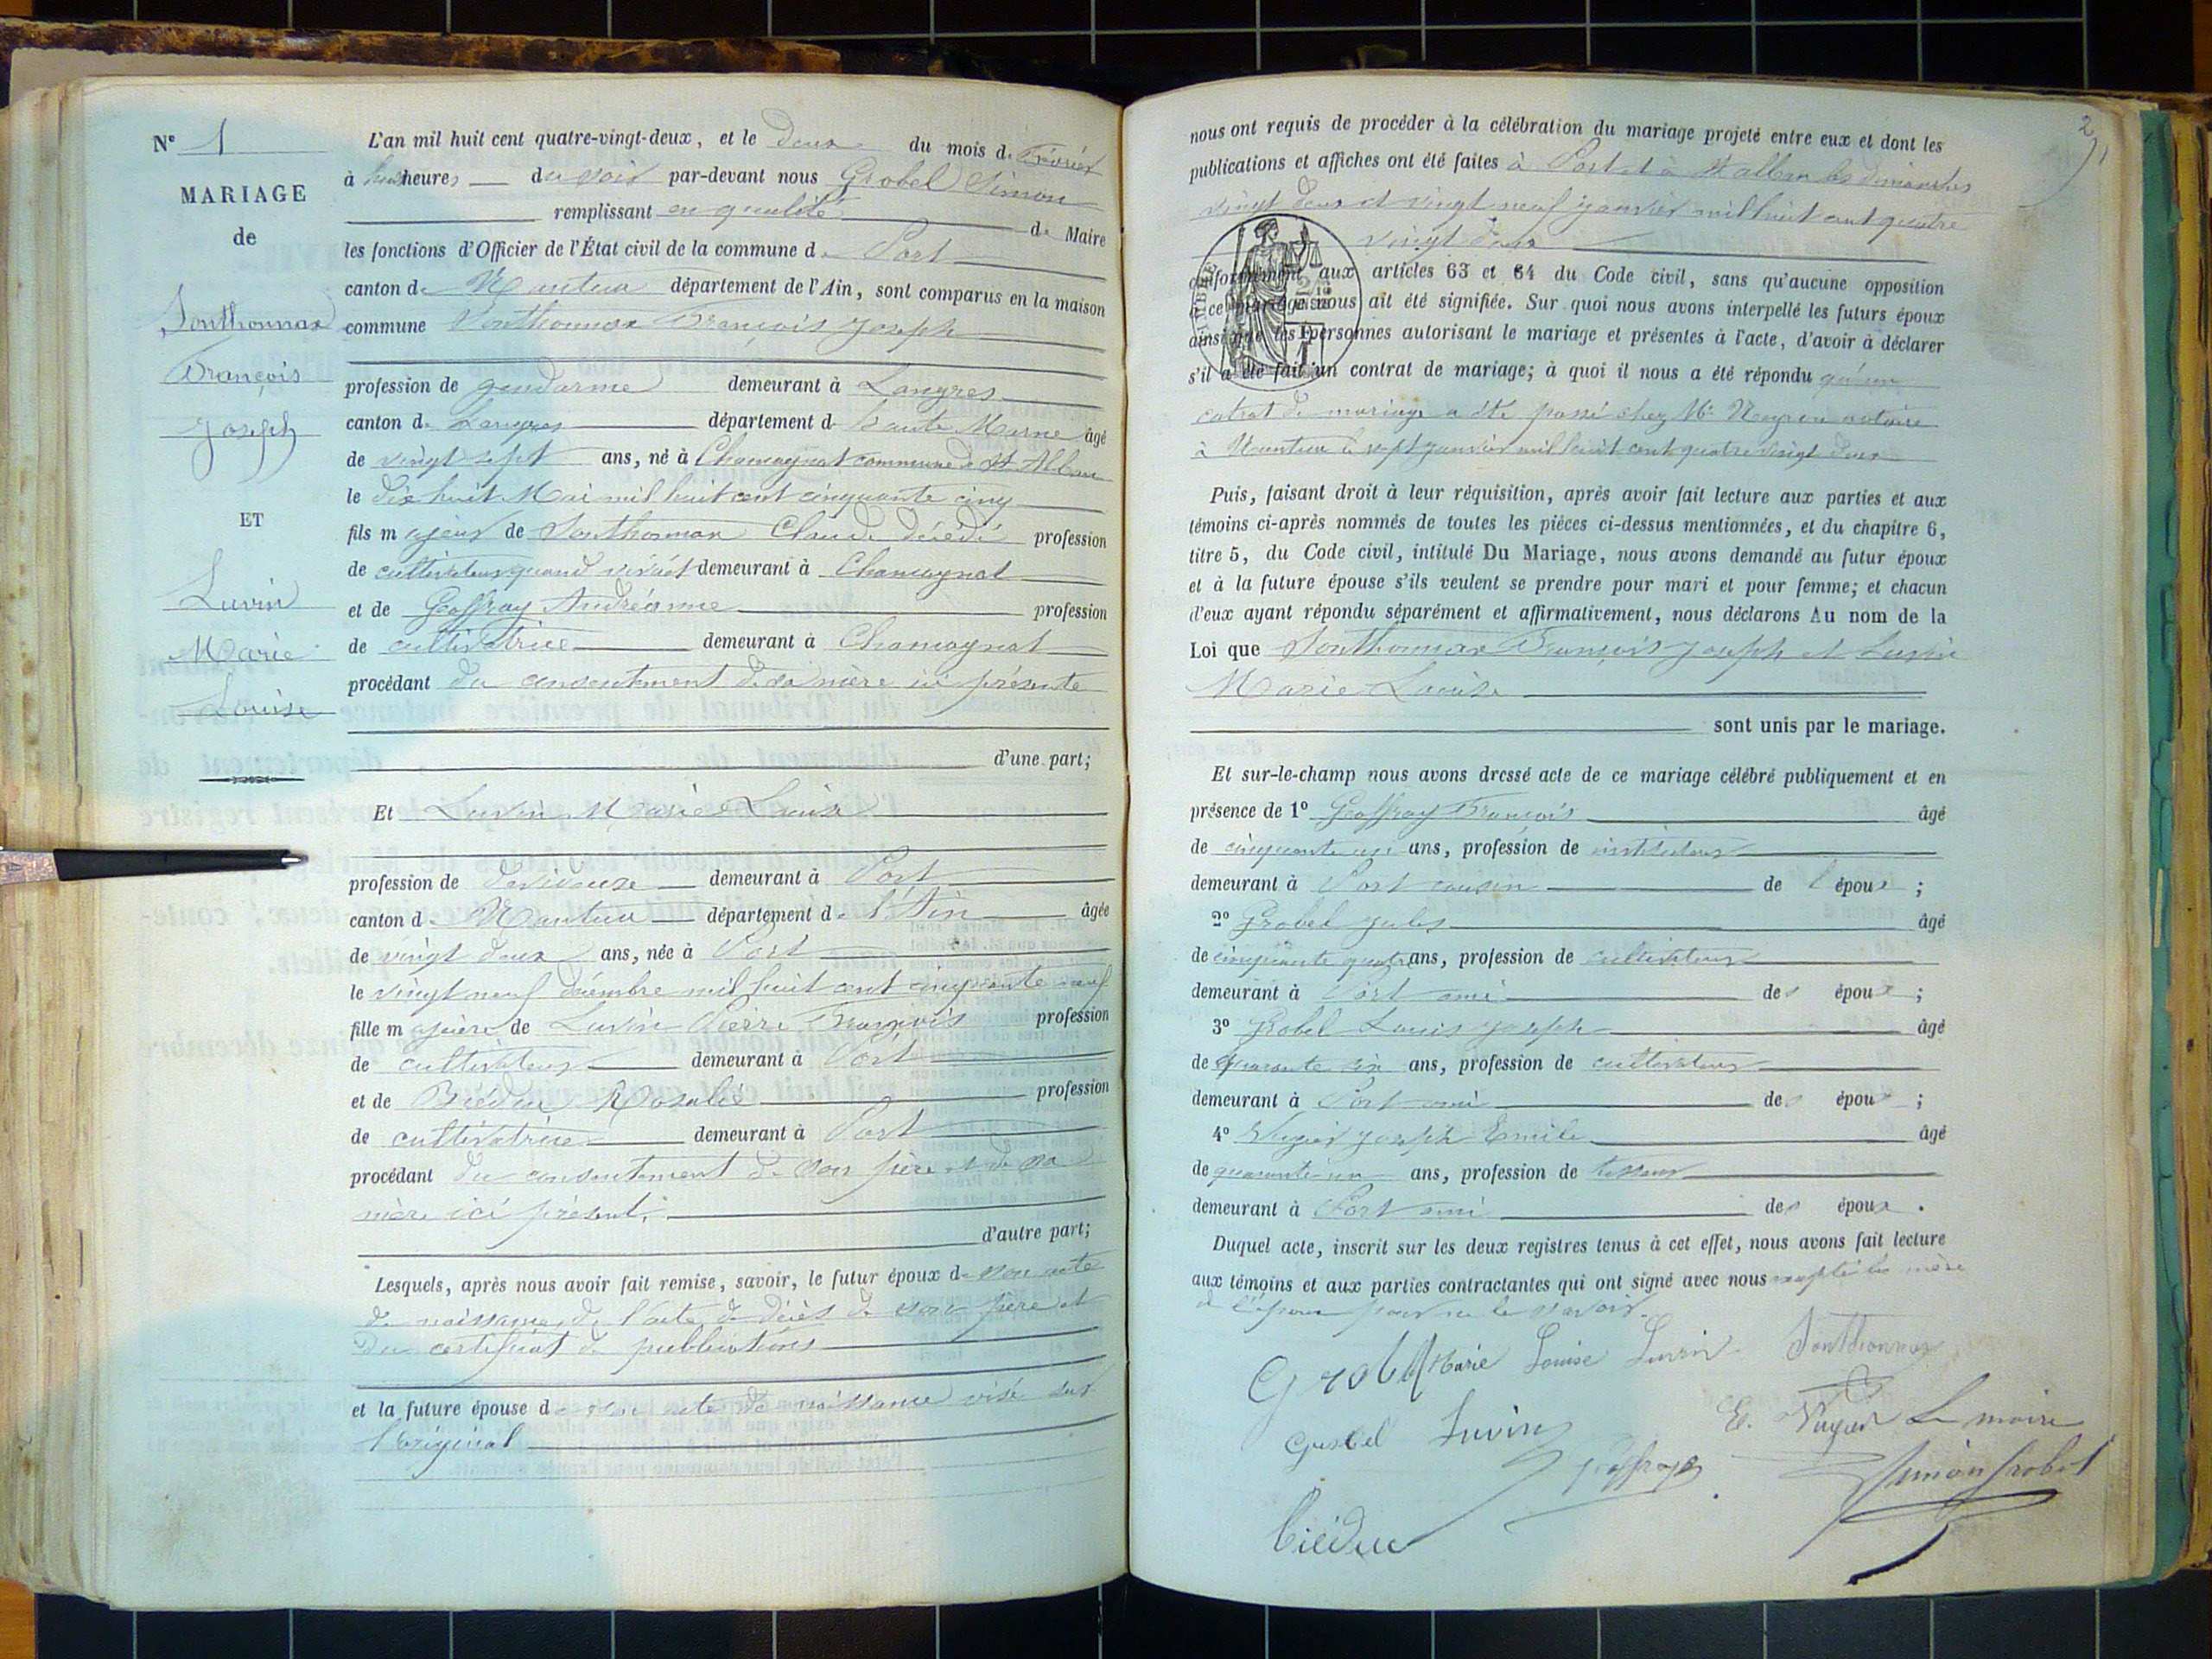 N° 1
MARIAGE
de
Sonthonnax
François
Joseph
ET
Luvin
Marie
Louise
L'an mil huit cent quatre-vingt-deux, et le deux du mois de Février
à huit heures du soir par-devant nous Grobel Simon
remplissant en qualité de Maire
les fonctions d'Officier de l'État civil de la commune de Port
canton de Nantua département de l'Ain, sont comparus en la maison
commune Sonthonnax François Joseph
profession de gendarme demeurant à Langres
canton de Langres département de haute Marne âgé
de vingt sept ans, né à Chamagnat commune de St Alban
le dix huit Mai mil huit cent cinquante cinq
fils majeur de Sonthonnax Claude décédé profession
de cultivateur quand vivait demeurant à Chamagnat
et de Geoffray Andréanne profession
de cultivatrice demeurant à Chamagnat
procédant du consentement de sa mère ici présente
d'une part;
Et Luvin Marie Louise
profession de dévideuse demeurant à Port
canton de Nantua département de l'Ain âgée
de vingt deux ans, née à Port
le vingt neuf décembre mil huit cent cinquante neuf
fille majeure de Luvin Pierre François profession
de cultivateur demeurant à Port
et de Biédue Rosalie profession
de cultivatrice demeurant à Port
procédant du consentement de son père et de sa
mère ici présent.
d'autre part;
Lesquels, après nous avoir fait remise, savoir, le futur époux de son acte
de naissance, de l'acte de décès de son père et
du certificat de publications
et la future épouse de son acte de naissance visé sur
l'original
2
nous ont requis de procéder à la célébration du mariage projeté entre eux et dont les
publications et affiches ont été faites à Port et à St alban les dimanches
vingt deux et vingt neuf janvier mil huit cent quatre
vingt deux
conformément aux articles 63 et 64 du Code civil, sans qu'aucune opposition
à ce mariage nous ait été signifiée. Sur quoi nous avons interpellé les futurs époux
ainsi que les personnes autorisant le mariage et présentes à l'acte, d'avoir à déclarer
s'il a été fait un contrat de mariage; à quoi il nous a été répondu qu'un
catrat de mariage a été passé chez Me Neyron notaire
à Nantua le sept janvier mil huit cent quatre vingt deux
Puis, faisant droit à leur réquisition, après avoir fait lecture aux parties et aux
témoins ci-après nommés de toutes les pièces ci-dessus mentionnées, et du chapitre 6,
titre 5, du Code civil, intitulé Du Mariage, nous avons demandé au futur époux
et à la future épouse s'ils veulent se prendre pour mari et pour femme; et chacun
d'eux ayant répondu séparément et affirmativement, nous déclarons Au nom de la
Loi que Sonthonnax François Joseph et Luvin
Marie Louise
sont unis par le mariage.
Et sur-le-champ nous avons dressé acte de ce mariage célébré publiquement et en
présence de 1° Geoffray François âgé
de cinquante un ans, profession de instituteur
demeurant à Port cousin de l'époux ;
2° Grobel Jules âgé
de cinquante quatre ans, profession de cultivateur
demeurant à Port ami des époux ;
3° Grobel Louis Joseph âgé
de quarante six ans, profession de cultivateur
demeurant à Port ami des époux ;
4° Vuger Joseph Emile âgé
de quarante-un ans, profession de tisseur
demeurant à Port ami des époux .
Duquel acte, inscrit sur les deux registres tenus à cet effet, nous avons fait lecture
aux témoins et aux parties contractantes qui ont signé avec nous excepté la mère
de l'époux pour ne le savoir.
Grobel Marie Louise Luvin Sonthonnax
E. Vuger Le maire
Grobel Luvin
Geoffray Simon Grobel
Biédue